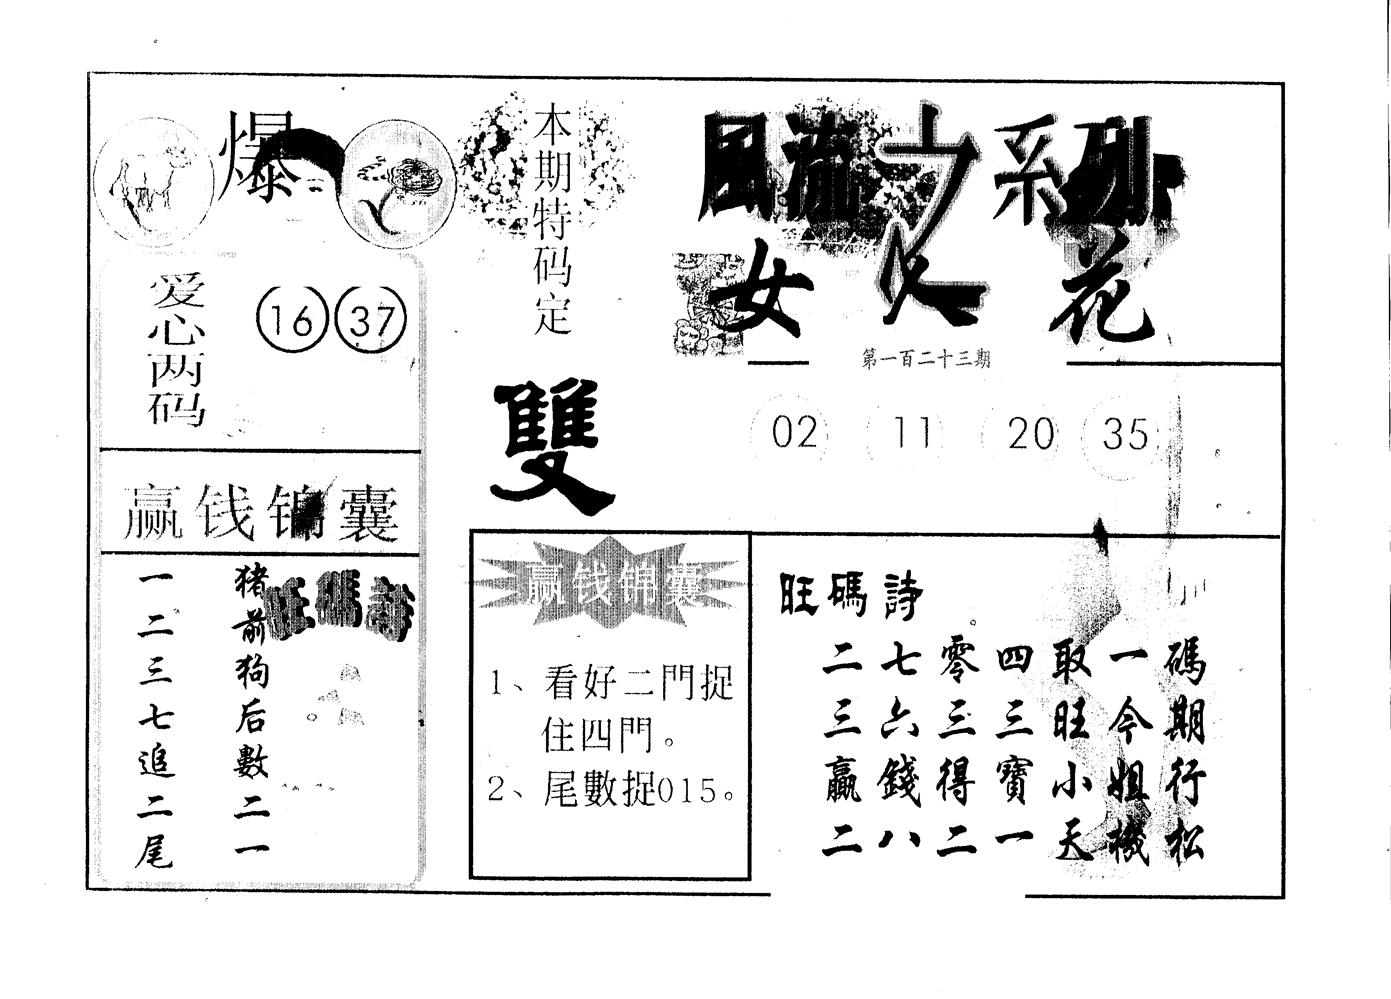 爆
本期特码定
雙
風流之系列
女人花
第一百二十三期
02 11 20 35
爱心两码
16 37
赢钱锦囊
旺碼詩
猪前狗后數二一
一二三七追二尾
赢钱锦囊
1、看好二門捉
住四門。
2、尾數捉015。
旺碼詩
二七零四取一碼
三六三三旺今期
贏錢得寶小姐行
二八二一天機松